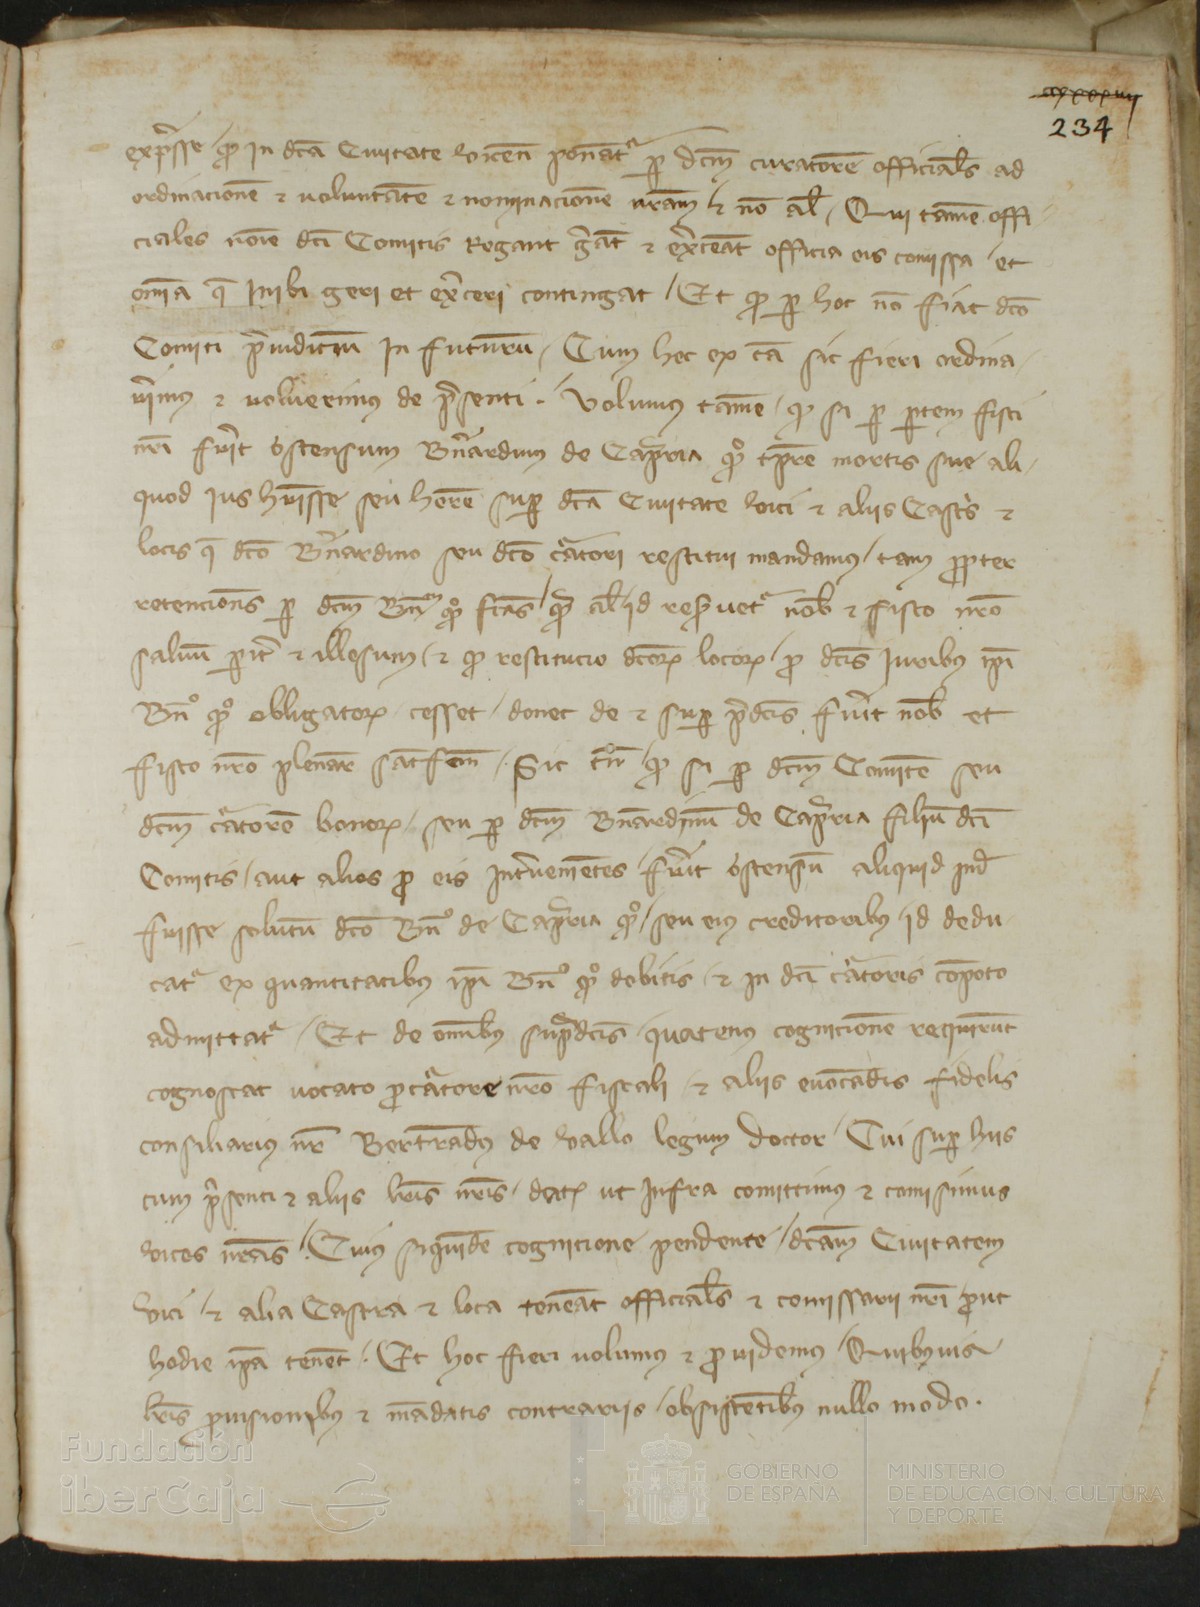 234
expr̄sse / qꝫ in dc̄a Ciuitate vicen̄ ponat᷑ ꝑ dc̄m curatorē officiał̄s ad
ordinacionē ⁊ voluntatē ⁊ nominacionē nr̄am ⁊ nō al̄ / Qui tamē offi
ciales nōie dc̄i Comitis Regant gr̄āt ⁊ ex̄rceāt officia eis comissa / et
om̄ia q̄ Inibi geri et ex̄rceri contingat / Et qꝫ ꝑ hoc nō fiāt dc̄o
Comiti p̄iudiciū In futurū / Cum hec ex cā sic fieri ordina /
vim̄us ⁊ voluerimus de p̄senti . Volumus tamē / qꝫ si ꝑ ꝑtem fisci
nr̄i fu̅it ostensum Bn̄ardum de Capr̄ria qͦ tꝑre mortis sue ali /
quod ius hu̅isse seu her̄e suꝑ dc̄a Ciuitate vici ⁊ aliis Castr̄s ⁊
locis q̄ dc̄o Bn̄ardino seu dc̄o c̄atori restitui mandamus / tam ꝓpter
retencion̄s ꝑ dc̄m Bn̄m qͦ fc̄as / qr̄ al̄ id res̄ruet᷑ nob̄ ⁊ fisco nr̄o
saluū ꝑit̄ ⁊ illesum / ⁊ qꝫ restitucio dc̄orꝫ locorꝫ / ꝓ dc̄is Iuribus ip̄i
Bn̄ͦ qͦ obligatorꝫ / cesset / donec de ⁊ suꝑ p̄dc̄is fu̅it nob̄ et
fisco nr̄o plenar̄ sat̄fcm̄ / Sic tn̄ / qꝫ si ꝑ dc̄m Comitē seu
dc̄m c̄atorē bonorꝫ / seu ꝑ dc̄m Bn̄ardinū de Capr̄ria filiū dc̄i
Comitis / aut alios ꝓ eis Int̄uenientes / fu̅it ostensū aliquid ind̄
fuisse solutū dc̄o Bn̄ͦ de Capr̄ria qͦ / seu eius creditoribus / id dedu /
cat᷑ ex quantitatibus ip̄i Bn̄ͦ qͦ debitis / ⁊ in dc̄i c̄atoris cōpoto
admittat᷑ / Et de om̄ibus sup̄dc̄is / quatenus cognicionē requirūt
cognoscat vocato ꝓc̄atore nr̄o fiscali / ⁊ aliis euocādis fidelis
consiliarius nr̄ Bertrādus de vallo legum doctor / Cui suꝑ hiis
cum p̄senti ⁊ aliis lr̄is nr̄is / datꝫ ut Infra comittimus ⁊ comisimus
vices nr̄as / Cuius siquidē cognicione pendente / dc̄am Ciuitatem
vici / ⁊ alia Castra ⁊ loca teneāt officiał̄s ⁊ comissarii nr̄i ꝓut
hodie ip̄a tenēt / Et hoc fieri volumus ⁊ ꝓuidemus / Quibusuis
lr̄is ꝓuisionibus ⁊ mādatis contrariis / obsistētibus nullo modo .
Fundación
iberCaja
GOBIERNO
DE ESPAÑA
MINISTERIO
DE EDUCACIÓN, CULTURA
Y DEPORTE